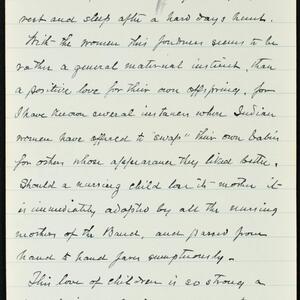 rest and sleep after a hard days hunt.
With the women this fondness seems to be
rather a general maternal instinct, than
a positive love for their own offspring, for
I have known several instances where Indian
women have offered to "swap" their own babies
for others whose appearance they liked better.
Should a nursing child lose its mother it
is immediately adopted by all the nursing
mothers of the Band, and passed from
hand to hand fares sumptuously.
This love of children is so strong a